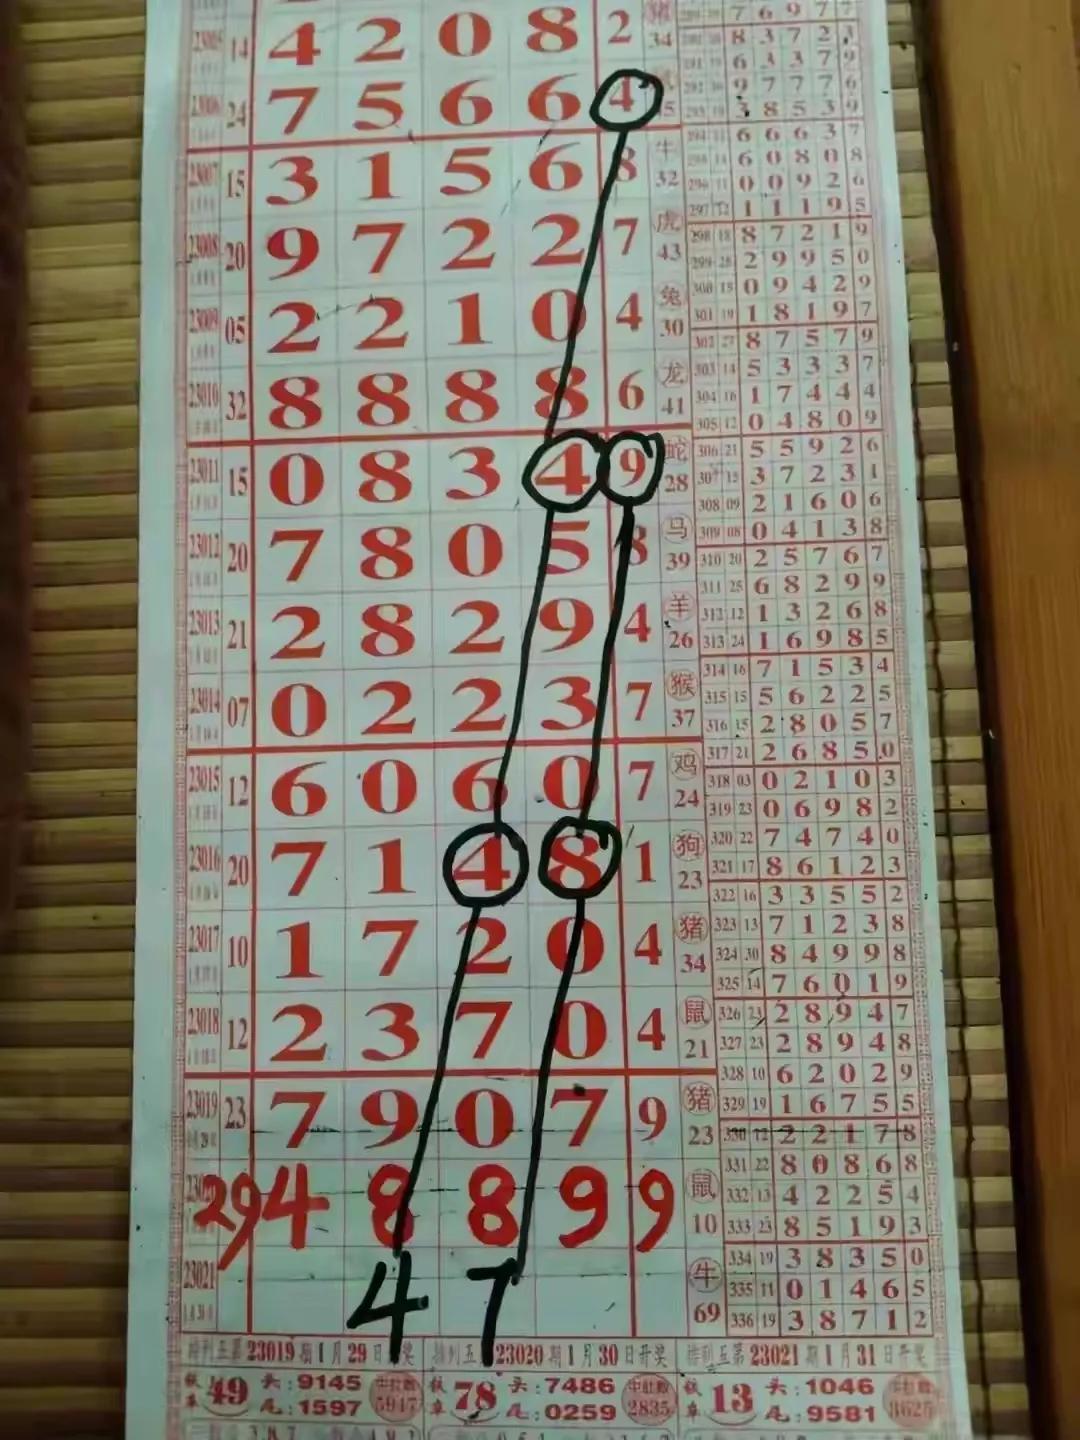 23005 14 4 2 0 8 2 猪 34
23006 24 7 5 6 6 4
23007 15 3 1 5 6 8 牛 32
23008 20 9 7 2 2 7 虎 43
23009 05 2 2 1 0 4 兔 30
23010 32 8 8 8 8 6 龙 41
23011 15 0 8 3 4 9 蛇 28
23012 20 7 8 0 5 8 马 39
23013 21 2 8 2 9 4 羊 26
23014 07 0 2 2 3 7 猴 37
23015 12 6 0 6 0 7 鸡 24
23016 20 7 1 4 8 1 狗 23
23017 10 1 7 2 0 4 猪 34
23018 12 2 3 7 0 4 鼠 21
23019 23 7 9 0 7 9 猪 23
29 4 8 8 9 9 鼠 10
23021 4 7 牛 69
8 3 7 2 3
6 3 3 7 9
9 7 7 7 6
3 8 5 3 9
6 6 6 3 7
6 0 8 0 8
0 0 9 2 6
297 12 1 1 1 9 5
298 18 8 7 2 1 9
299 25 2 9 9 5 0
300 15 0 9 4 2 9
301 19 1 8 1 9 7
302 27 8 7 5 7 9
303 14 5 3 3 3 7
304 16 1 7 4 4 4
305 12 0 4 8 0 9
306 21 5 5 9 2 6
307 15 3 7 2 3 1
308 09 2 1 6 0 6
309 08 0 4 1 3 8
310 20 2 5 7 6 7
311 25 6 8 2 9 9
312 12 1 3 2 6 8
313 24 1 6 9 8 5
314 16 7 1 5 3 4
315 15 5 6 2 2 5
316 15 2 8 0 5 7
317 21 2 6 8 5 0
318 03 0 2 1 0 3
319 23 0 6 9 8 2
320 22 7 4 7 4 0
321 17 8 6 1 2 3
322 16 3 3 5 5 2
323 13 7 1 2 3 8
324 30 8 4 9 9 8
325 14 7 6 0 1 9
326 23 2 8 9 4 7
327 23 2 8 9 4 8
328 10 6 2 0 2 9
329 19 1 6 7 5 5
330 12 2 2 1 7 8
331 22 8 0 8 6 8
332 13 4 2 2 5 4
333 23 8 5 1 9 3
334 19 3 8 3 5 0
335 11 0 1 4 6 5
336 19 3 8 7 1 2
排列五第23019期1月29日开奖
49 头:9145 尾:1597 5947
排列五第23020期1月30日开奖
78 头:7486 尾:0259 2835
排列五第23021期1月31日开奖
13 头:1046 尾:9581 8625